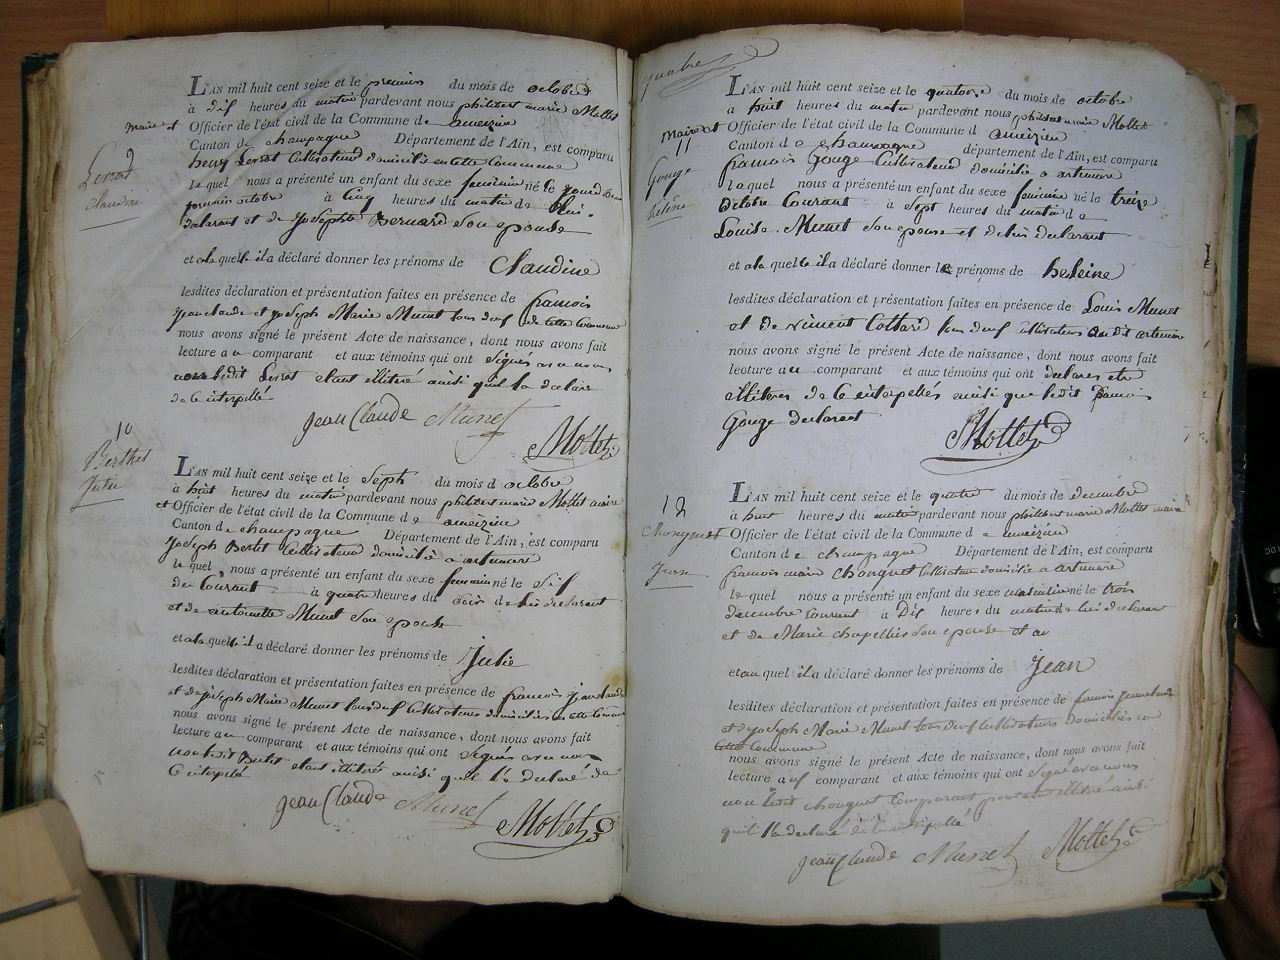 L'AN mil huit cent seize et le premier du mois de octobre
à dix heures du matin pardevant nous philibert marie Mollet
maire et Officier de l'état civil de la Commune de ameizin
Canton de champagne Département de l'Ain, est comparu
9
claudine
henry Cultivateur domicilié en cette Commune
lequel nous a présenté un enfant du sexe feminin né le
premier octobre à Cinq heures du matin de lui
declarant et de Josephte Bernard Son epouse
et a laquelle il a déclaré donner les prénoms de Claudine
lesdites déclaration et présentation faites en présence de francois
jean claude et joseph Marie Munet tous deux de cette Commune
nous avons signé le présent Acte de naissance, dont nous avons fait
lecture au comparant et aux témoins qui ont Signés avec nous
non ledit etant illitéré ainsi quil la declaré
de ce interpellé
jean Claude Munet
Mollet
10
Berthet
Julie
L'AN mil huit cent seize et le Sept du mois d octobre
à huit heures du matin pardevant nous philibert marie Mollet maire
et Officier de l'état civil de la Commune de ameizin
Canton de champagne Département de l'Ain, est comparu
Joseph Bertet Cultivateur domicilié a artemare
lequel nous a présenté un enfant du sexe feminin né le Six
du Courant à quatre heures du Soir de lui declarant
et de antoinette Munet Son epouse
et a laquelle il a déclaré donner les prénoms de Julie
lesdites déclaration et présentation faites en présence de francois jean claude
et de joseph Marie Munet tous deux Cultivateurs domiciliés en cette Commune
nous avons signé le présent Acte de naissance, dont nous avons fait
lecture au comparant et aux témoins qui ont Signés avec nous
non ledit Bertet etant illitéré ainsi quil l'a declaré de
Ce interpelé
jean Claude Munet
Mollet
L'AN mil huit cent seize et le quatorze du mois de octobre
a huit heures du matin pardevant nous philibert marie Mollet
maire et Officier de l'état civil de la Commune d ameizieu
11
Gouge
heleine
Canton de champagne département de l'Ain, est comparu
francois Gouge Cultivateur domicilié a artemare
lequel nous a présenté un enfant du sexe feminin né le treize
Octobre Courant à Sept heures du matin de
Louise Munet Son epouse et de lui declarant
et a laquelle il a déclaré donner le prénoms de heleine
lesdites déclaration et présentation faites en présence de Louis Munet
et de vincent Collard tous deux Cultivateurs au dit artemare
nous avons signé le présent Acte de naissance, dont nous avons fait
lecture au comparant et aux témoins qui ont declarés etre
illiteres de Ce interpellés ainsi que ledit francois
Gouge declarant
Mollet
12
Chonguet
Jean
L'AN mil huit cent seize et le quatre du mois de decembre
à huit heures du matin pardevant nous philibert marie Mollet maire
Officier de l'état civil de la Commune d e ameizieu
Canton d e champagne Département de l'Ain, est comparu
francois marie Chonguet Cultivateur domicilié a artemare
lequel nous a présenté un enfant du sexe masculin né le trois
decembre Courant à Dix heures du matin de lui declarant
et de Marie chapelle Son epouse et au
et auquel il a déclaré donner les prénoms de Jean
lesdites déclaration et présentation faites en présence de francois jean claude
et de joseph Marie Munet tous deux Cultivateurs domiciliés en
cette Commune
nous avons signé le présent Acte de naissance, dont nous avons fait
lecture au comparant et aux témoins qui ont Signé avec nous
non ledit Chonguet Comparant pour etre illitéré ainsi
quil l'a declaré de Ce interpellé
jean Claude Munet Mollet